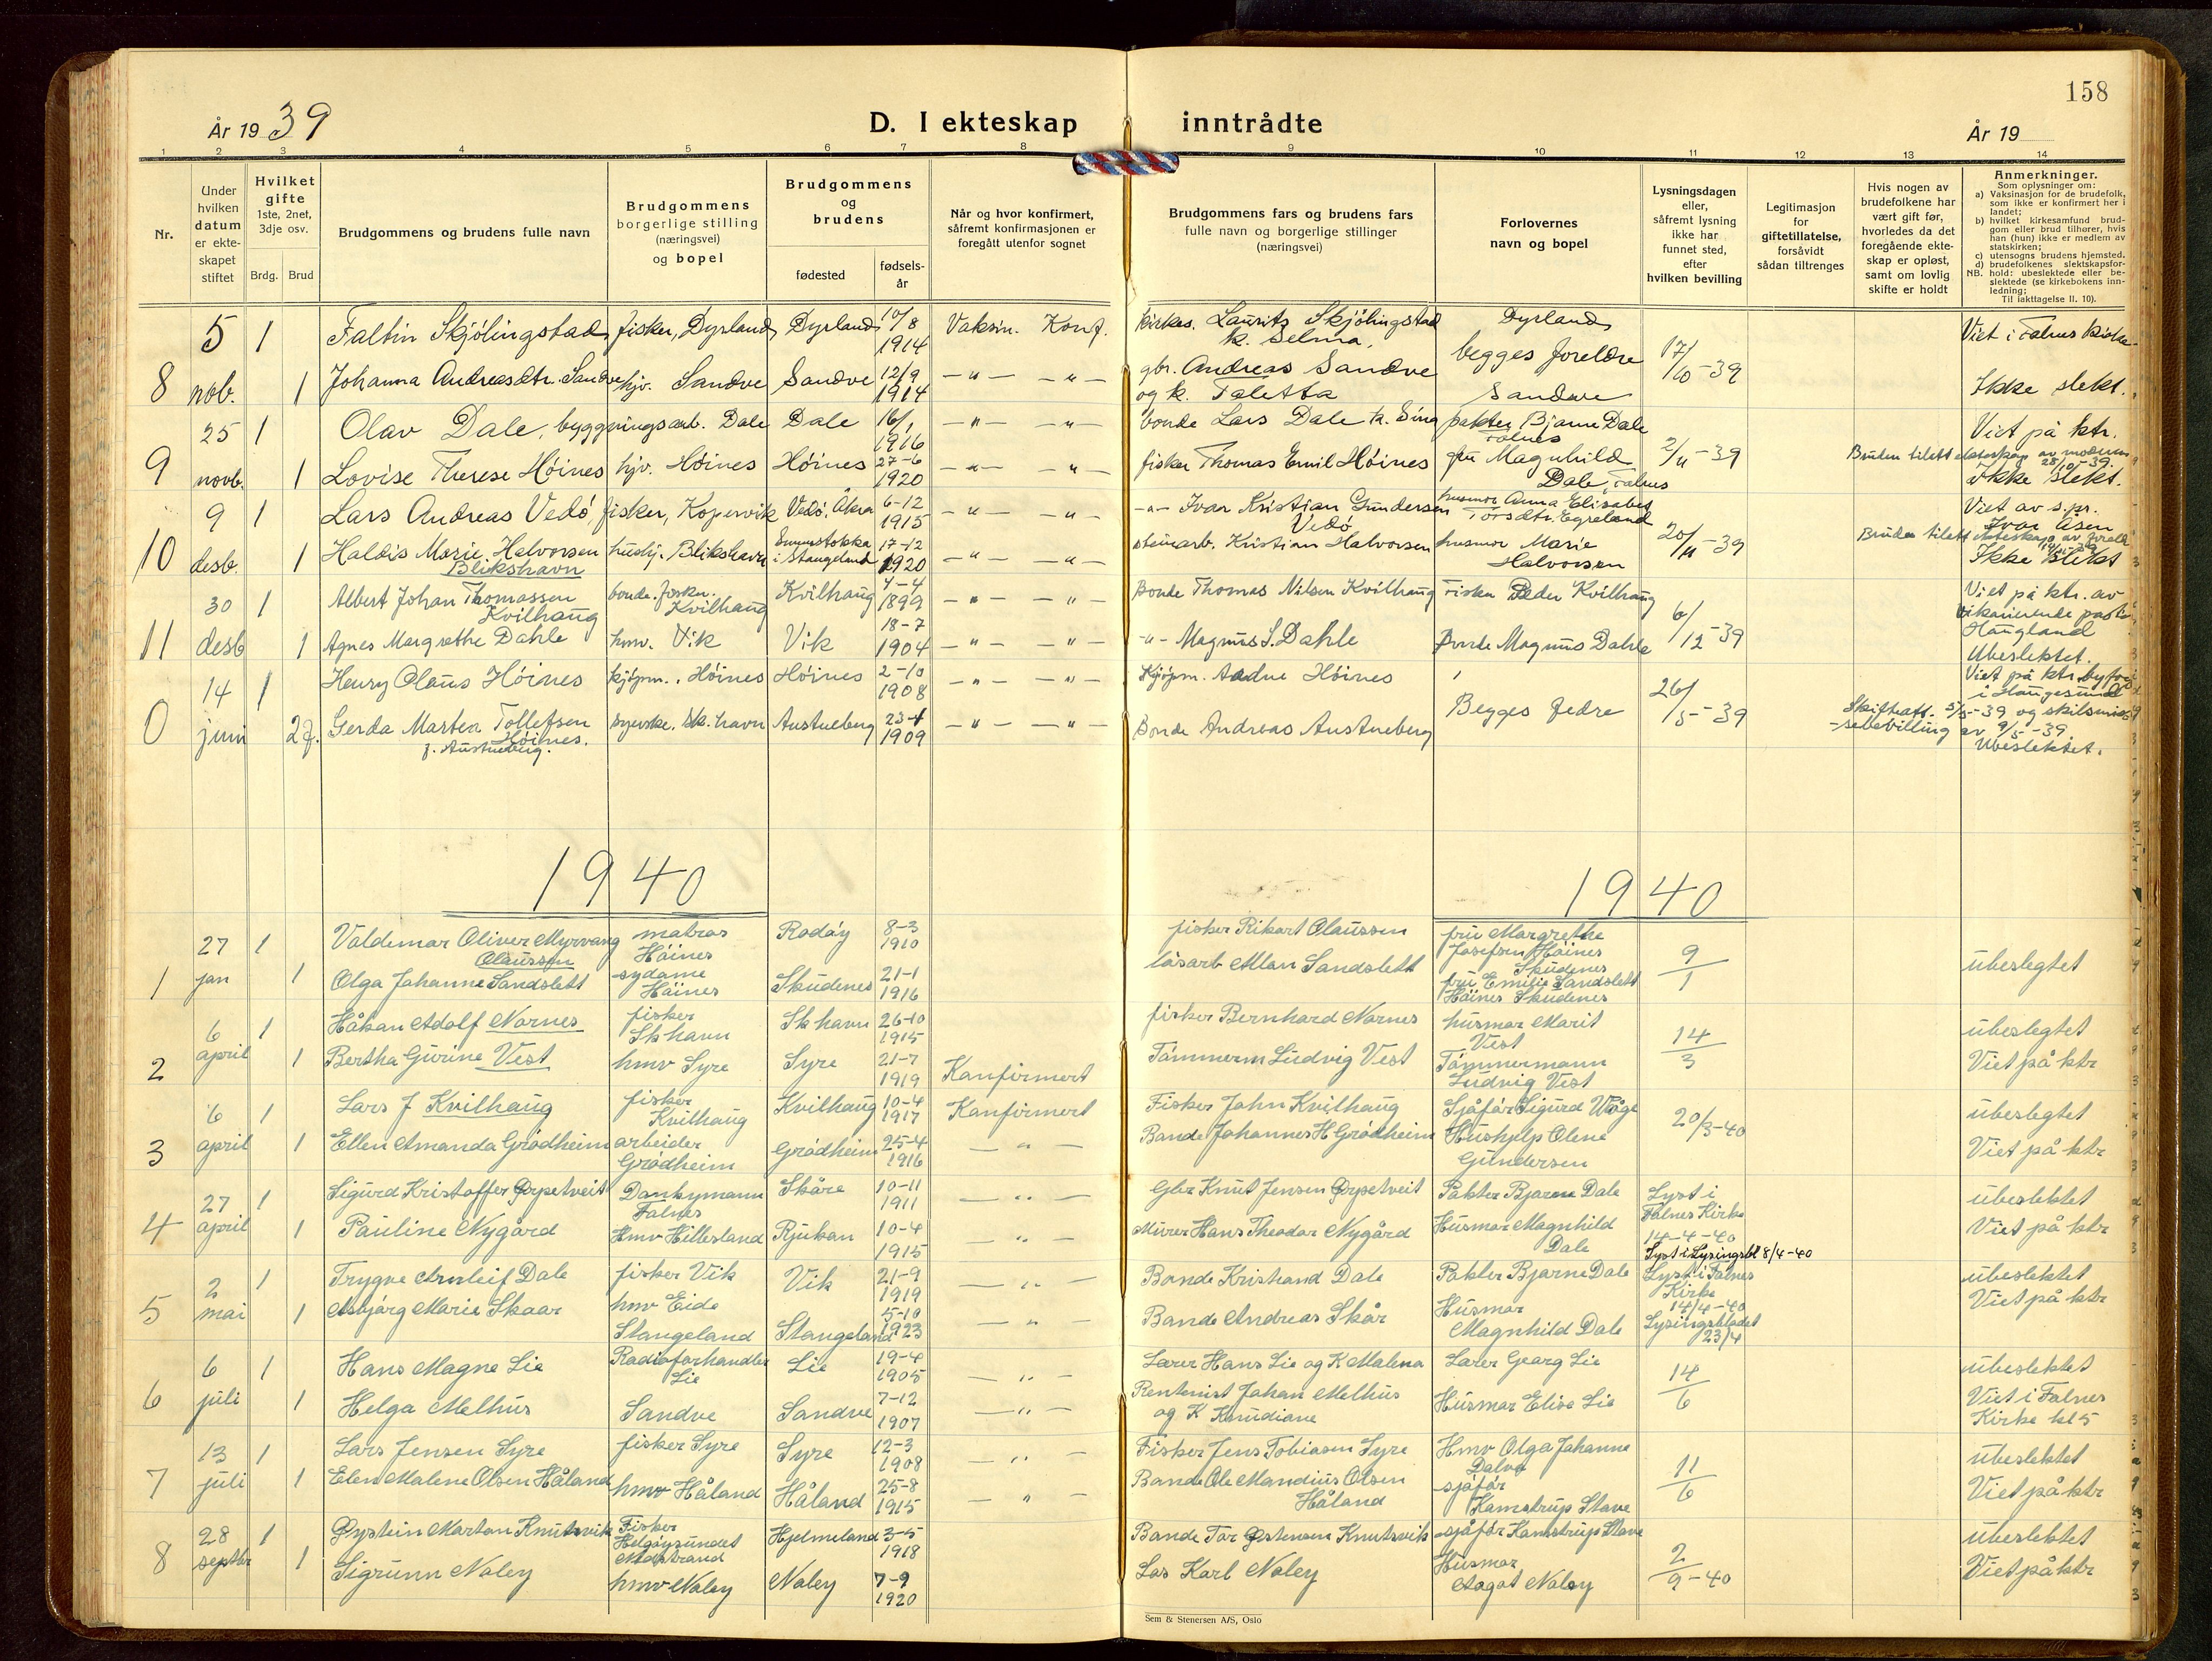 158
År 1939
D. I ekteskap inntrådte
År 19
1 2 3 4 5 6 7 8 9 10 11 12 13 14
Nr.
Under hvilken datum er ekteskapet stiftet
Hvilket gifte 1ste, 2net, 3dje osv.
Brdg. Brud
Brudgommens og brudens fulle navn
Brudgommens borgerlige stilling (næringsvei) og bopel
Brudgommens og brudens
fødested
fødselsår
Når og hvor konfirmert, såfremt konfirmasjonen er foregått utenfor sognet
Brudgommens fars og brudens fars fulle navn og borgerlige stillinger (næringsvei)
Forlovernes navn og bopel
Lysningsdagen eller, såfremt lysning ikke har funnet sted, efter hvilken bevilling
Legitimasjon for giftetillatelse, forsåvidt sådan tiltrenges
Hvis nogen av brudefolkene har vært gift før, hvorledes da det foregående ekteskap er opløst, samt om lovlig skifte er holdt
Anmerkninger.
Som oplysninger om:
a) Vaksinasjon for de brudefolk, som ikke er konfirmert her i landet;
b) hvilket kirkesamfund brudgom eller brud tilhører, hvis han (hun) ikke er medlem av statskirken;
c) utensogns brudens hjemsted.
d) brudefolkenes slektskapsforhold: ubeslektede eller beslektede (se kirkebokens innledning;
NB.
Til iakttagelse II. 10).
5 1 Faltin Skjölingstad fisker, Dyrland Dyrland 10/8 1914 Vaksin. Konf. kirkes. Laurits Skjölingstad k. Selma, Dyrland Viet i Falnes kirke
8 nob. 1 Johanna Andreasdtr. Sandve hjv. Sandve Sandve 12/9 1914 —"— —"— gbr. Andreas Sandve og k. Taletta begges foreldre Sandve 17/10-39 Ikke slekt.
25 1 Olav Dale, byggningsarb. Dale Dale 16/1 1916 —"— —"— bonde Lars Dale k. Sina pakter Bjarne Dale Falnes Viet på ktr.
9 novb. 1 Lovise Therese Höines hjv. Höines Höines 27-6 1920 —"— " — fisker Thomas Emil Höines fru Magnhild Dale, Falnes 2/11-39 Bruden tilatt ekteskap av moderen 28/10-39. Ikke slekt.
9 1 Lars Andreas Vedö fisker, Kopervik Vedö, Åkra 6-12 1915 —"— " — —"— Ivar Kristian Gundersen Vedö husmor Anna Elisabet Torsdtr. Egreland Viet av s.pr. Ivar Åsen
10 desb. 1 Haldis Marie Halvorsen Blikshavn hushj. Blikshavn i Stangeland 17-12 1920 —"— —"— steinarb. Kristian Halvorsen husmor Marie Halvorsen 20/11-39 Bruden tilatt ekteskap av foreld. Ikke slekt
30 1 Albert Johan Thomassen Kvilhaug bonde. fisker. Kvilhaug Kvilhaug 4-4 1899 —"— " — Bonde Thomas Nilsen Kvilhaug Fisker Peder Kvilhaug Viet på ktr. av vikarierende pastor Haugland
11 desb 1 Agnes Margrethe Dahle hmv. Vik Vik 18-7 1904 —"— " — -"- Magnus S. Dahle Bonde Magnus Dahle 6/12-39 Ubeslektet.
14 1 Henry Olaus Höines kjöpm., Höines Höines 2-10 1908 —"— " — Kjöpm. Aadne Höines Viet på ktr. byfogd i Haugesund
0 juni 2 f. Gerda Martea Tollefsen Höines. f. Austneberg. syerske, Sk. havn Austneberg 23-4 1909 —"— " — Bonde Andreas Austneberg Begges fedre 26/5-39 Skifteatt. 5/5-39 og skilsmissebevilling av 9/5-39. Ubeslektet.
1940
1940
27 1 Valdemar Oliver Myrvang Olaussen matros Höines Rodöy 8-3 1910 fisker Rikart Olaussen fru Margrethe Josefsen Höines Skudenes
1 jan 1 Olga Johanne Sandslett sydame Höines Skudenes 21-1 1916 lösarb Allan Sandslett fru Emilie Sandslett Höines Skudenes 9/1 ubeslegtet
6 1 Håkan Adolf Nornes fisker Sk havn Sk havn 26-10 1915 fisker Bernhard Nornes husmor Marit Vest ubeslegtet
2 april 1 Bertha Gurine Vest hmv Syre Syre 21-7 1919 Konfirmert Tömmerm Ludvig Vest Tömmermann Ludvig Vest 14/3 Viet på ktr
6 1 Lars J Kvilhaug fisker Kvilhaug Kvilhaug 10-4 1917 Konfirmert Fisker John Kvilhaug Sjåför Sigurd Våge ubeslegtet
3 april 1 Ellen Amanda Grödheim arbeider Grödheim Grödheim 25-4 1916 —"— Bonde Johannes H Grödheim Hushjelp Olene Gundersen 20/3-40 Viet på ktr
27 1 Sigurd Kristoffer Ørpetveit Dankymann Falnes Skåre 10-11 1911 —"— Gbr Knut Jensen Ørpetveit Pakter Bjarne Dale Lyst i Falnes Kirke ubeslektet
4 april 1 Pauline Nygård Hmv Hillesland Rjukan 10-4 1915 —"— Murer Hans Theodor Nygård Husmor Magnhild Dale 14-4-40 Viet på ktr
Lyst i Lysingsbl 8/4-40
2 1 Trygve Arnleif Dale fisker Vik Vik 21-9 1919 —"— Bonde Kristiand Dale Pakter Bjarne Dale Lyst i Falnes Kirke 14/4-40 ubeslektet
5 mai 1 Asbjörg Marie Skaar hmv Eide Stangeland Stangeland 5-10 1923 —"— Bonde Andreas Skår Husmor Magnhild Dale Lysingsbladet 23/4 Viet på ktr
6 1 Hans Magne Lie Radioforhandler Lie Lie 19-4 1905 —"— Lærer Hans Lie og K Malena Lærer Georg Lie ubeslektet
6 juli 1 Helga Melhus Sandve Sandve 7-12 1907 Rentenist Johan Melhus og K Knudiane Husmor Elise Lie 14/6 Viet i Falnes Kirke kl 5
13 1 Lars Jensen Syre fisker Syre Syre 12-3 1908 —"— Fisker Jens Tobiasen Syre Hmv Olga Johanne Dalvo ubeslektet
7 juli 1 Elen Malene Olsen Håland hmv Håland Håland 25-8 1915 —"— Bonde Ole Mandius Olsen Håland sjåför Kamstrup Stave 11/6 Viet på ktr
28 1 Øystein Morton Knutsvik Fisker Helgöysundet Hjelmeland 3-5 1918 Bonde Tor Østensen Knutsvik sjåför Kamstrup Stave ubeslektet
8 septbr 1 Sigrunn Naley hmv Naley Naley 7-9 1920 Los Karl Naley Husmor Aagot Naley 2/9-40 Viet på ktr
Sem & Stenersen A/S, Oslo